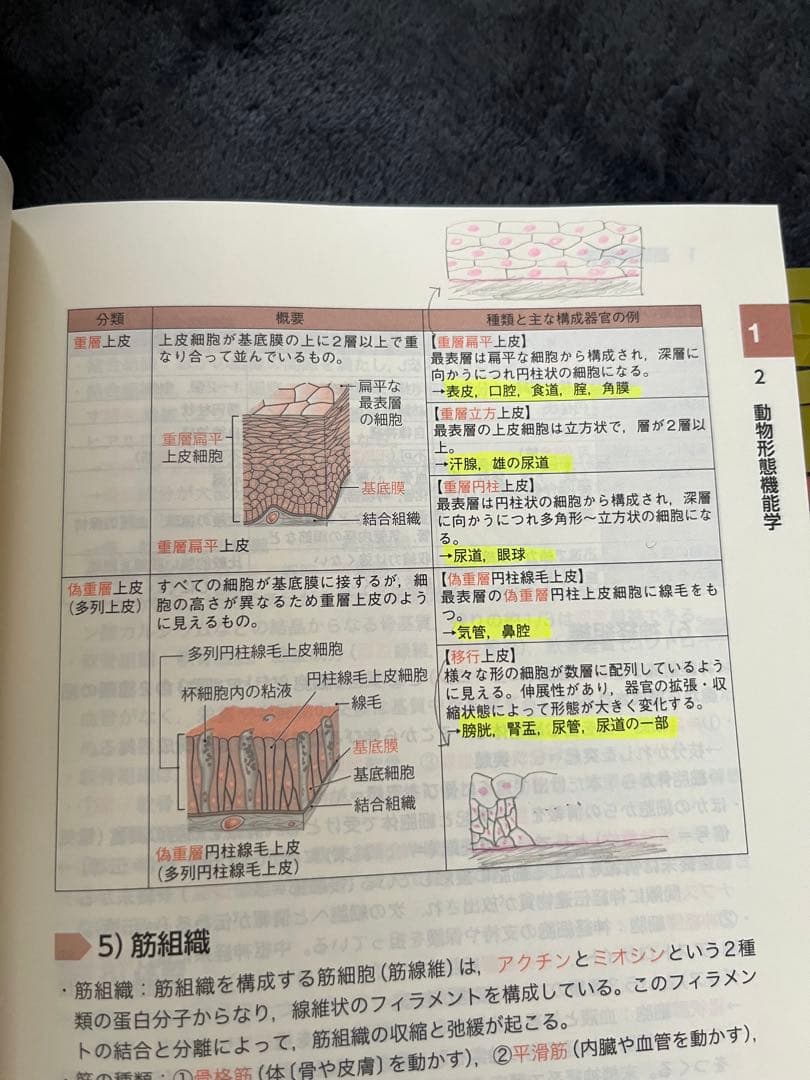 分類
概要
種類と主な構成器官の例
重層上皮
上皮細胞が基底膜の上に2層以上で重
なり合って並んでいるもの。
扁平な
最表層
の細胞
重層扁平
上皮細胞
基底膜
結合組織
重層扁平上皮
【重層扁平上皮】
最表層は扁平な細胞から構成され，深層に
向かうにつれ円柱状の細胞になる。
→表皮，口腔，食道，腟，角膜
【重層立方上皮】
最表層の上皮細胞は立方状で，層が2層以
上。
→汗腺，雄の尿道
【重層円柱上皮】
最表層は円柱状の細胞から構成され，深層
に向かうにつれ多角形～立方状の細胞にな
る。
→尿道，眼球
偽重層上皮
（多列上皮）
すべての細胞が基底膜に接するが，細
胞の高さが異なるため重層上皮のよう
に見えるもの。
多列円柱線毛上皮細胞
円柱線毛上皮細胞
杯細胞内の粘液
線毛
基底膜
基底細胞
結合組織
偽重層円柱線毛上皮
（多列円柱線毛上皮）
【偽重層円柱線毛上皮】
最表層の偽重層円柱上皮細胞に線毛をも
つ。
→気管，鼻腔
【移行上皮】
様々な形の細胞が数層に配列しているよう
に見える。伸展性があり，器官の拡張・収
縮状態によって形態が大きく変化する。
→膀胱，腎盂，尿管，尿道の一部
1
2 動物形態機能学
5）筋組織
・筋組織：筋組織を構成する筋細胞（筋線維）は，アクチンとミオシンという2種
類の蛋白分子からなり，線維状のフィラメントを構成している。このフィラメン
トの結合と分離によって，筋組織の収縮と弛緩が起こる。
・筋の種類：①骨格筋（体〔骨や皮膚〕を動かす），②平滑筋（内臓や血管を動かす），